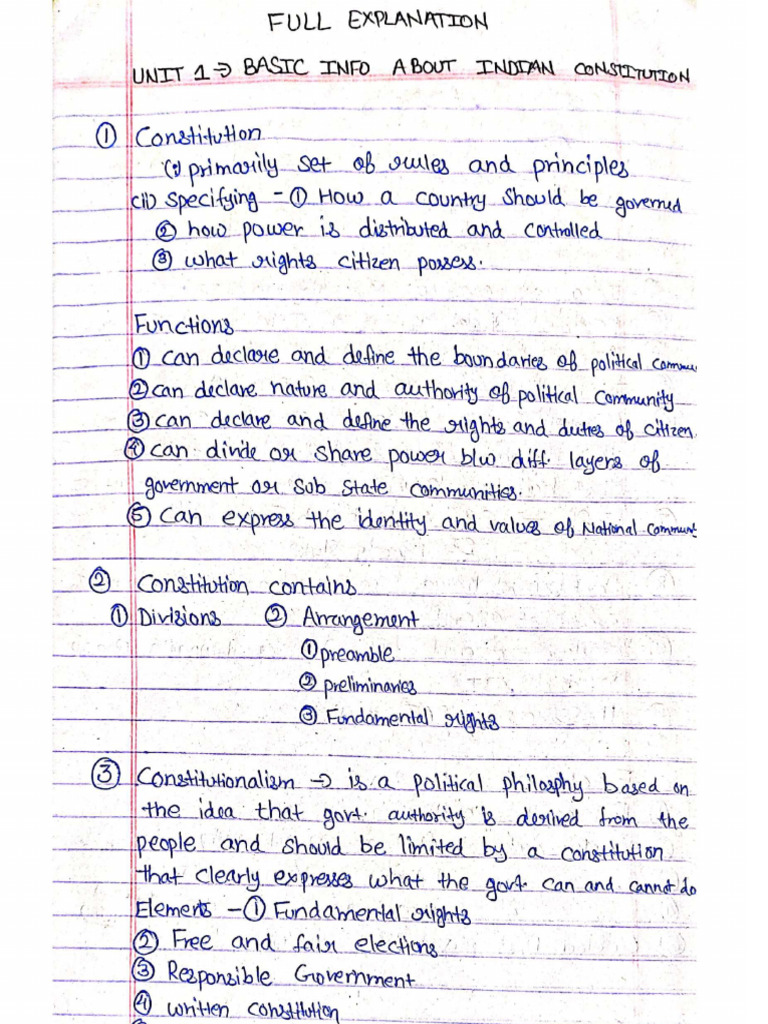 FULL EXPLANATION
UNIT 1 → BASIC INFO ABOUT INDIAN CONSTITUTION
① Constitution
(i) primarily set of rules and principles
(ii) specifying - ① How a country should be governed
② how power is distributed and controlled
③ what rights citizen possess.
Functions
① can declare and define the boundaries of political commu
② can declare nature and authority of political community
③ can declare and define the rights and duties of citizen
④ can divide or share power b/w diff. layers of
government or sub state communities.
⑤ can express the identity and values of National commun
② Constitution contains
① Divisions ② Arrangement
① preamble
② preliminaries
③ Fundamental rights
③ Constitutionalism → is a political philosphy based on
the idea that govt. authority is derived from the
people and should be limited by a constitution
that clearly expresses what the govt. can and cannot do
Elements - ① Fundamental rights
② Free and fair elections
③ Responsible Government
④ written constitution